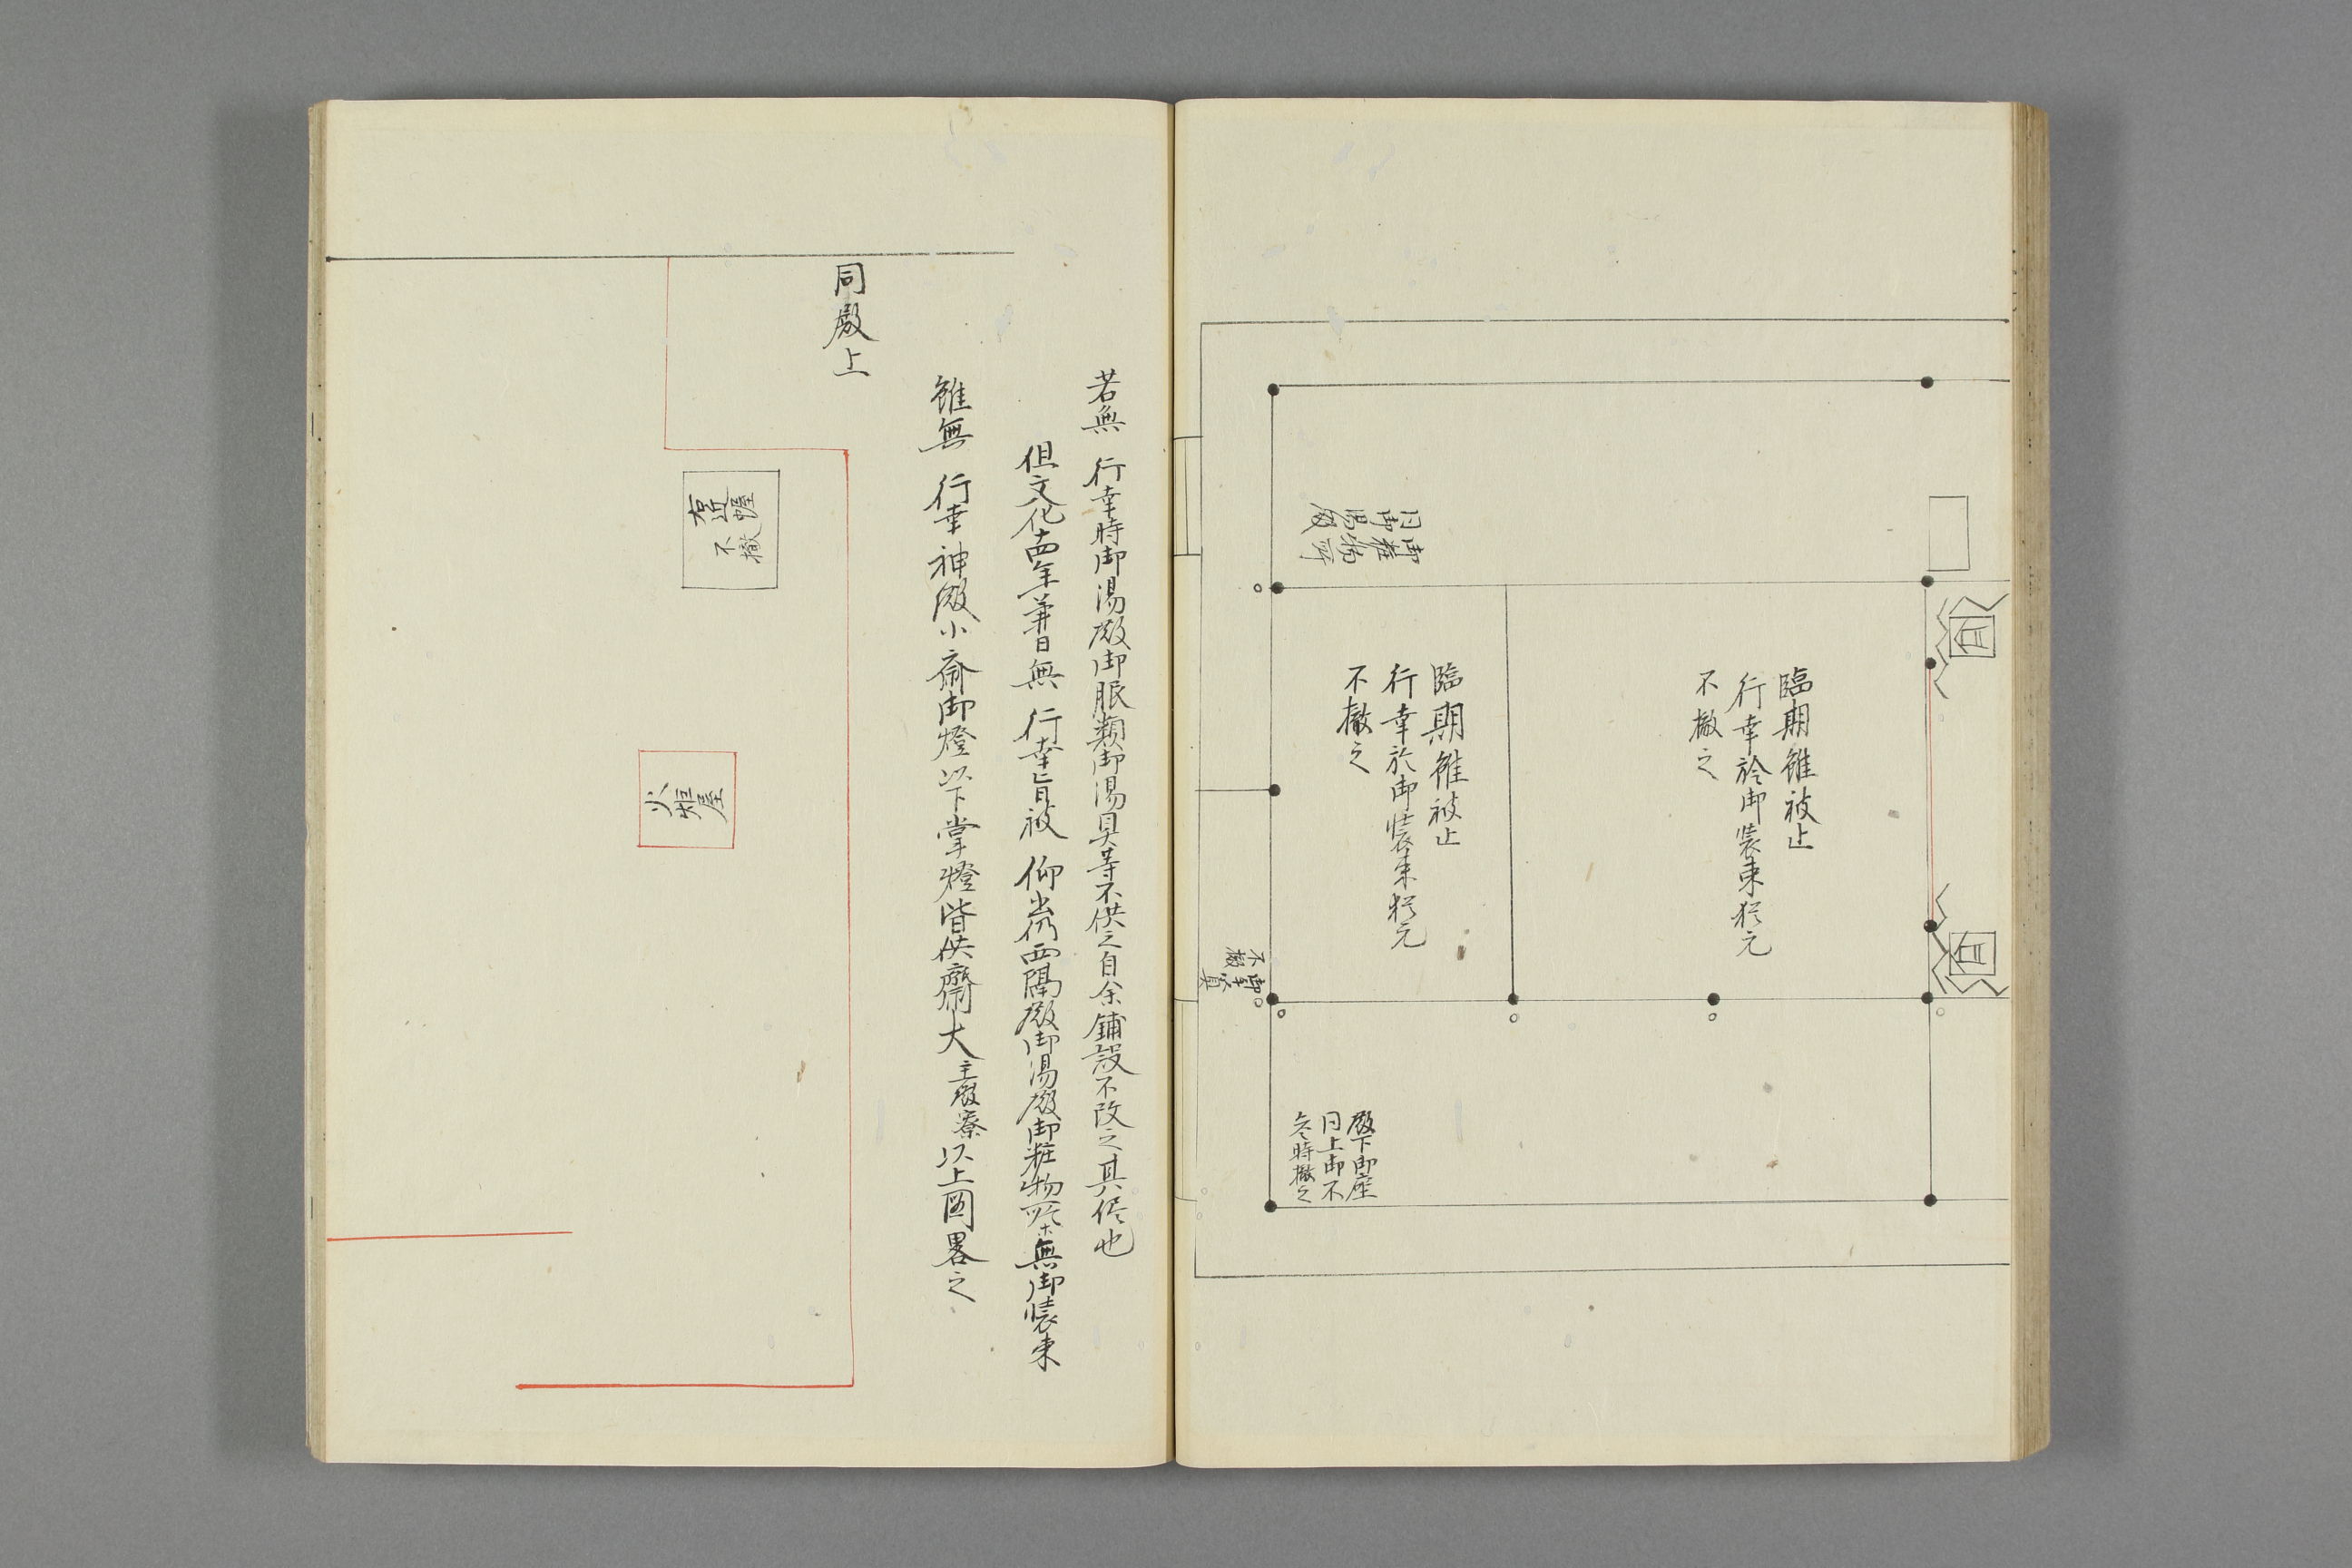 臨期雖被止
行幸於御装束猶元
不撤之
臨期雖被止
行幸於御装束猶元
不撤之
御粧物所
同御湯殿
不撤
殿下御座
同上御不
参時撤之
若無 行幸時御湯殿御服類御湯具等不供之自余鋪設不改之其儘也
但文化十四年兼日無 行幸旨被 仰出仍西隔殿御湯殿御粧物所等無御装束
雖無 行幸神殿小斎御燈以下掌燈皆供斎大主殿寮以上図畧之
同殿上
右近幄
不撤
火炬屋